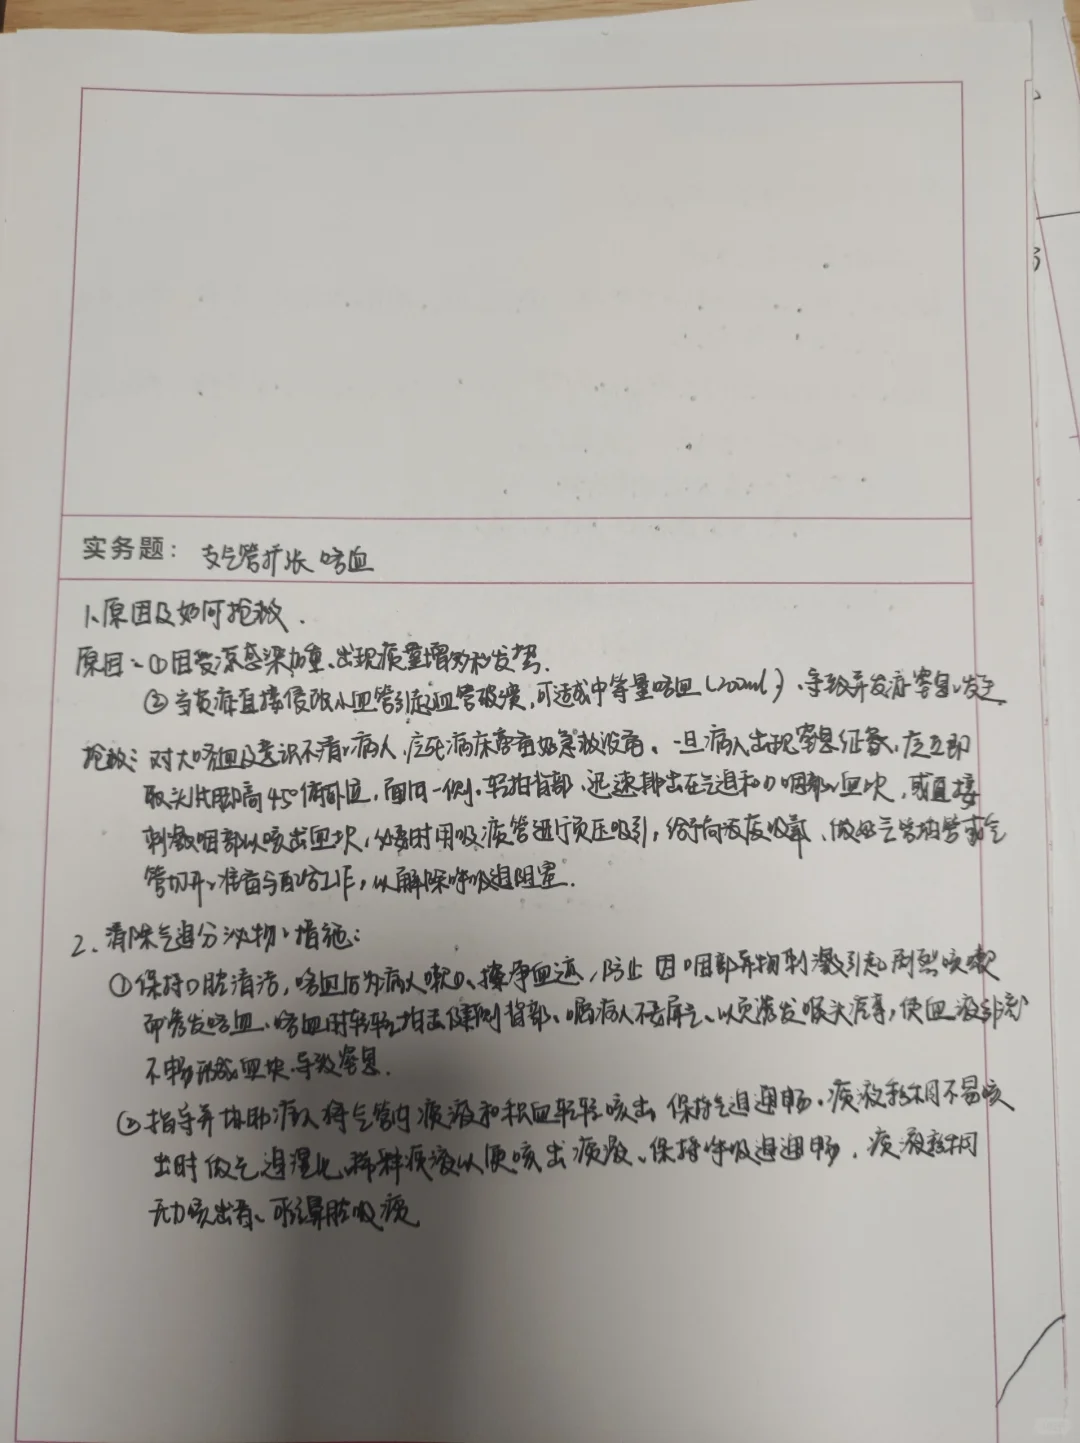 实务题： 支气管扩张 咯血
1、原因及如何抢救.
原因：①因受凉感染加重、出现痰量增多和发热.
②当炎症直接侵破小血管引起血管破溃,可造成中等量咯血(200ml)、导致并发症窒息、发生
抢救：对大咯血及意识不清、病人,应在病床旁备好急救设备、一旦病人出现窒息征象,应立即
取头低脚高45°俯卧位,面向一侧,轻拍背部、迅速排出在气道和口咽部、血块,或直接
刺激咽部以咳出血块,必要时用吸痰管进行负压吸引,给予高浓度吸氧、做好气管插管或气
管切开、准备与配合工作,以解除呼吸道阻塞.
2、清除气道分泌物、措施:
①保持口腔清洁,咯血后为病人漱口、擦净血迹,防止因口咽部异物刺激引起剧烈咳嗽
而诱发咯血、咯血时轻轻拍击健侧背部、嘱病人不要屏气、以免诱发喉头痉挛,使血液引流
不畅形成血块、导致窒息.
②指导并协助病人将气管内痰液和积血轻轻咳出 保持气道通畅、痰液黏稠不易咳
出时做气道湿化、稀释痰液以便咳出痰液、保持呼吸道通畅、痰液黏稠
无力咳出者、可经鼻腔吸痰